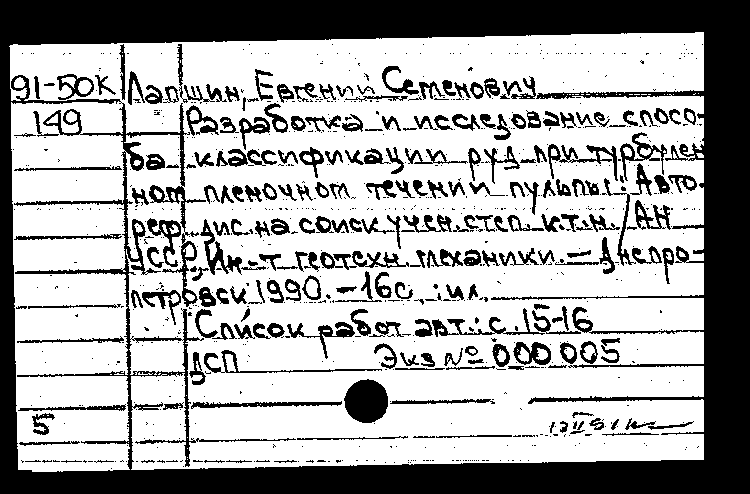 91-50К Лапшин, Евгений Семенович
149 Разработка и исследование спосо-
ба классификации руд при турбулен
ном пленочном течении пульпы: Авто-
реф. дис. на соиск. учен. степ. к.т.н. / АН
УССР, Ин-т геотехн. механики. – Днепро-
петровск, 1990. – 16с. : ил.
Список работ авт.: с. 15-16
ДСП Экз № 000 005
5